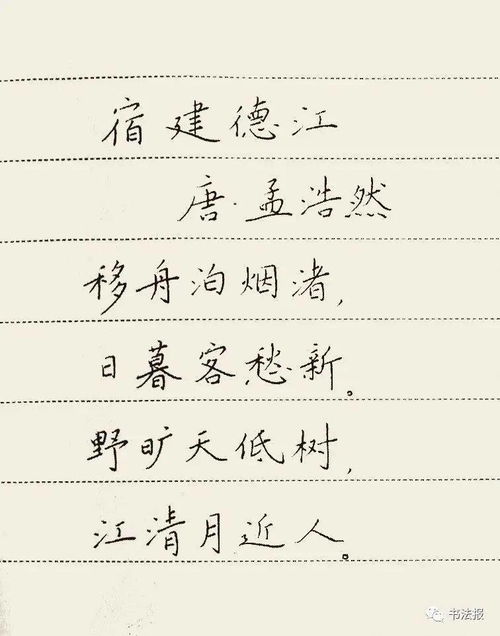 宿建德江
唐·孟浩然
移舟泊烟渚,
日暮客愁新。
野旷天低树,
江清月近人。
书法报